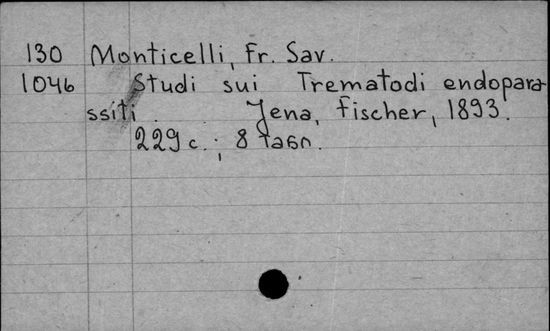 130 Monticelli, Fr. Sav.
1046 Studi sui Trematodi endopara-
ssiti. Jena, Fischer, 1893.
229 с.; 8 табл.